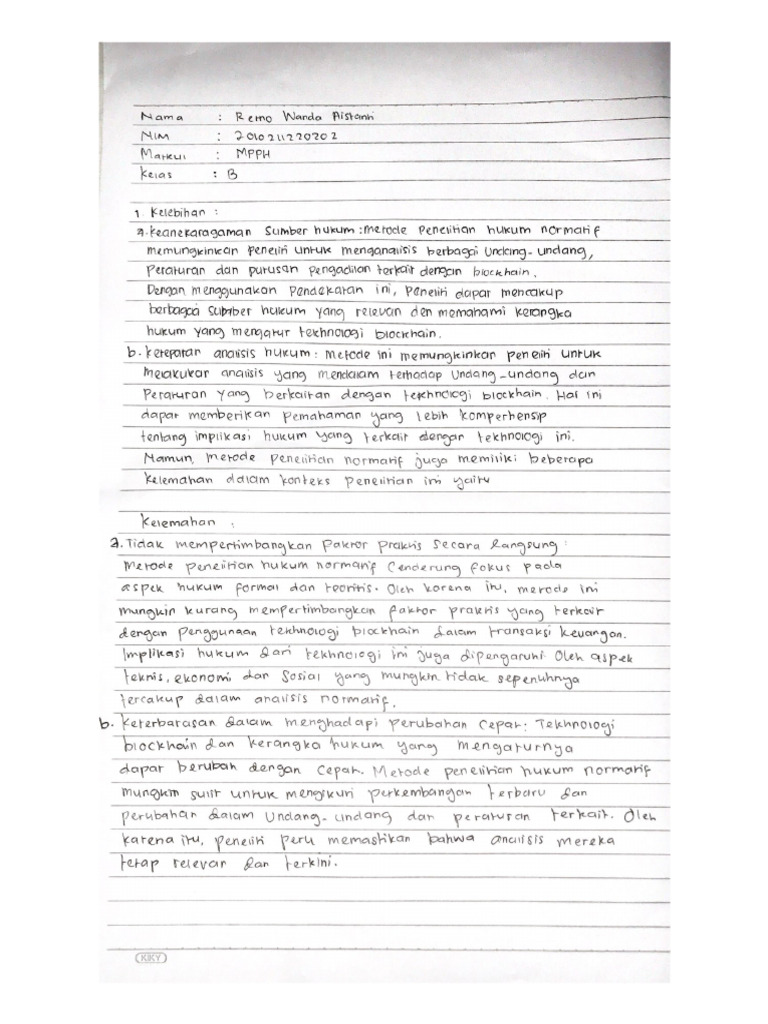 Nama : Retno Wanda Aistanti
NIM : 201021220202
Matkul : MPPH
Kelas : B
1. Kelebihan :
a. Keanekaragaman Sumber hukum : Metode Penelitian hukum normatif
memungkinkan Peneliti untuk menganalisis berbagai Undang-undang,
Peraturan dan putusan pengadilan terkait dengan blockhain.
Dengan menggunakan pendekatan ini, Peneliti dapat mencakup
berbagai Sumber hukum yang relevan den memahami kerangka
hukum yang mengatur tekhnologi blockhain.
b. Ketepatan analisis hukum : Metode ini memungkinkan peneliti untuk
melakukan analisis yang mendalam terhadap Undang-undang dan
Peraturan yang berkaitan dengan tekhnologi blockhain. Hal ini
dapat memberikan Pemahaman yang lebih komperhensip
tentang implikasi hukum yang terkait dengan tekhnologi ini.
Namun, metode penelitian normatif juga memiliki beberapa
kelemahan dalam konteks penelitian ini yaitu
Kelemahan :
a. Tidak mempertimbangkan faktor praktis secara langsung :
Metode penelitian hukum normatif Cenderung fokus pada
aspek hukum formal dan teoritis. Oleh karena itu, metode ini
mungkin kurang mempertimbangkan faktor praktis yang terkait
dengan penggunaan tekhnologi blockhain dalam transaksi keuangan.
Implikasi hukum dari tekhnologi ini juga dipengaruhi oleh aspek
teknis, ekonomi dan Sosial yang mungkin tidak sepenuhnya
tercakup dalam analisis normatif.
b. Keterbatasan dalam menghadapi perubahan Cepat : Tekhnologi
blockhain dan kerangka hukum yang mengaturnya
dapat berubah dengan cepat. Metode penelitian hukum normatif
mungkin sulit untuk mengikuti perkembangan terbaru dan
perubahan dalam Undang-undang dan peraturan terkait. Oleh
karena itu, peneliti perlu memastikan bahwa analisis mereka
tetap relevan dan terkini.
KIKY